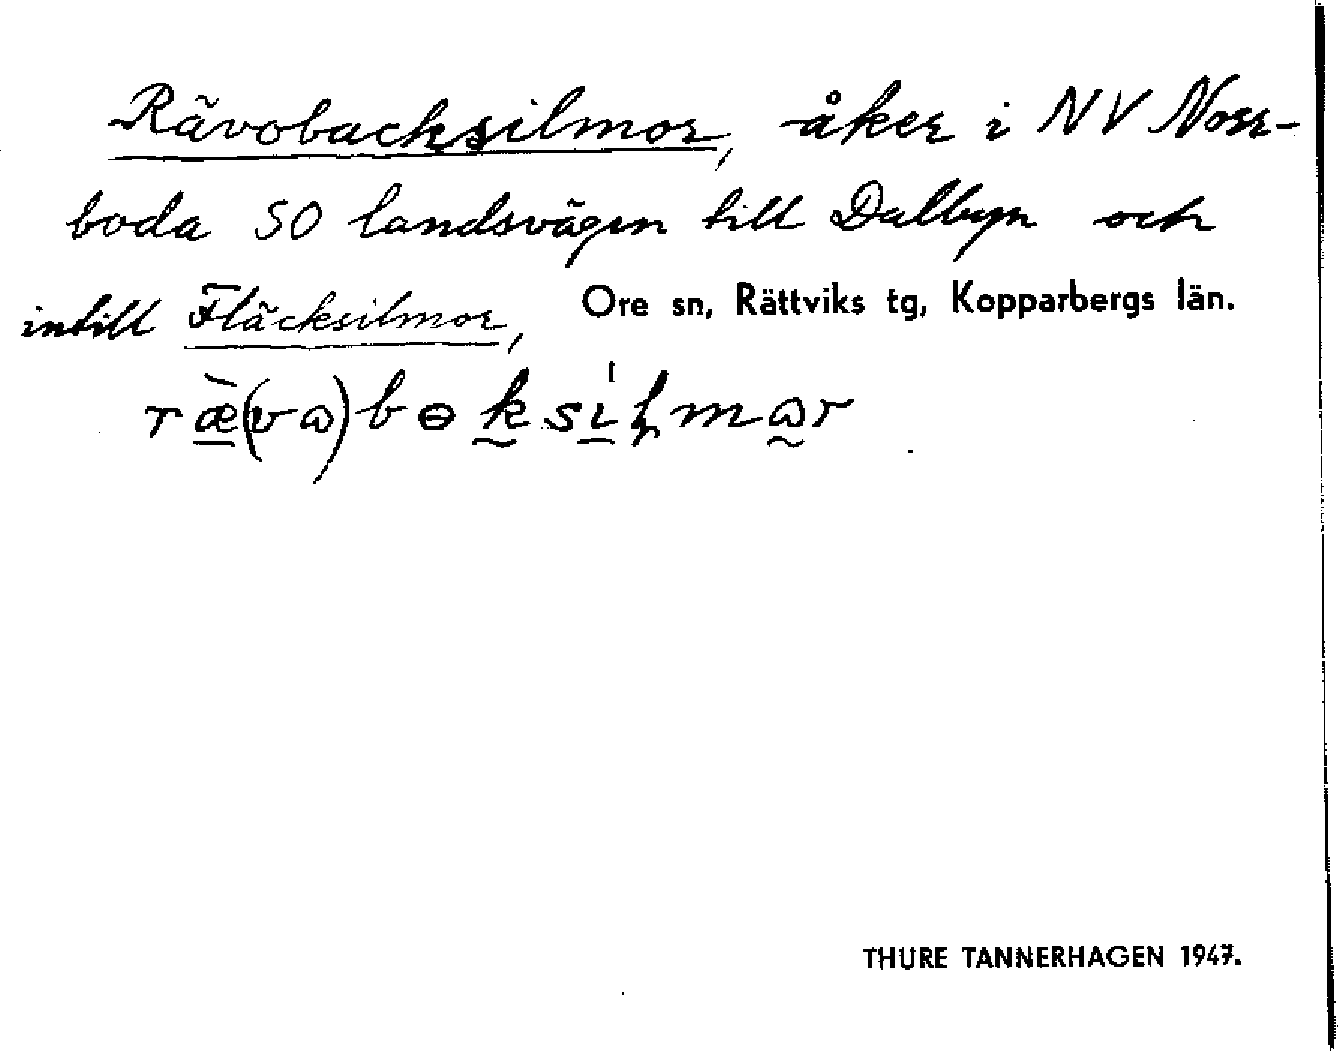 Rävobacksilmor, åker i NV Norr-
boda SO landsvägen till Dalbyn och
intill Fläcksilmor, Ore sn, Rättviks tg, Kopparbergs län.
ræ̀(va)bɵksilmar
THURE TANNERHAGEN 1947.